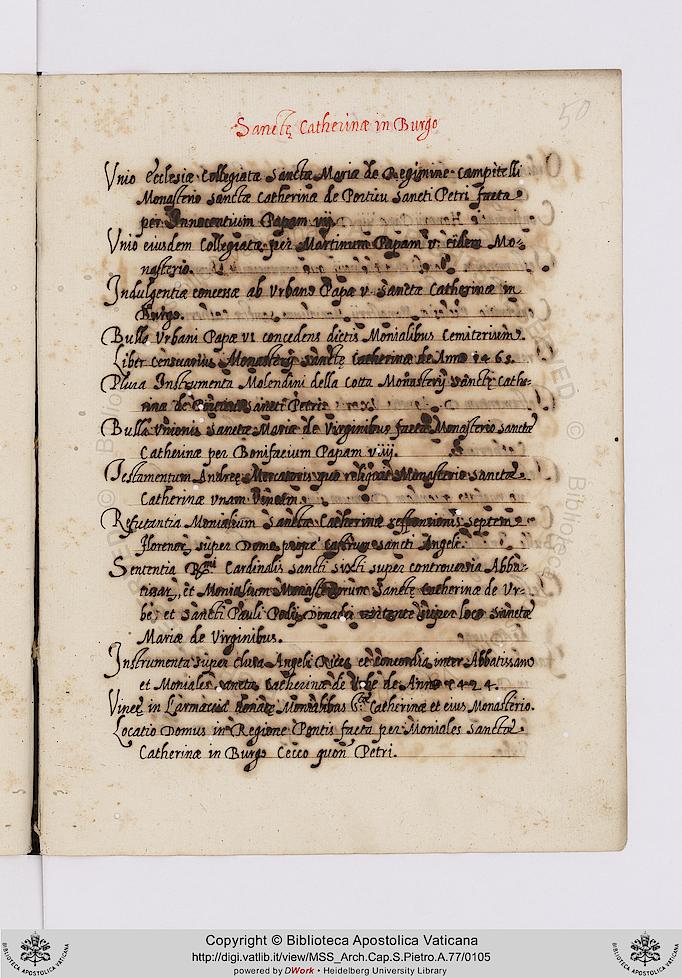 50
Sanctę Catherinæ in Burgo
Vnio ecclesiæ Collegiatæ Sanctæ Mariæ de Regimine Campitelli
Monasterio Sanctæ Catherinæ de Porticu Sancti Petri facta
per Innocentium Papam vij.
Vnio eiusdem Collegiatæ per Martinum Papam v. eidem Mo-
nasterio.
Indulgentiæ concessæ ab Vrbano Papæ v. Sanctæ Catherinæ in
Burgo.
Bulla Vrbani Papæ vi concedens dictis Monialibus Cemiterium.
Liber censuarius Monasterij Sanctę Catherinæ de Anno 1465.
Plura Instrumenta Molendini della Cotta Monasterij Sanctę Cathe-
rinæ de Sancti Petri
Bulla vnionis Sanctæ Mariæ de Virginibus factæ Monasterio Sanctæ
Catherinæ per Bonifacium Papam viiij.
Testamentum Andreę Mercatoris quo reliquit Monasterio Sanctæ
Catherinæ vnam Vineam.
Refutantia Monialium Sanctæ Catherinæ responsionis septem
florenor. super Domo prope Castrum Sancti Angeli.
Sententia Cardinalis Sancti Sixti super controuersia Abba-
tissar., et Monialium Monasteriorum Sanctę Catherinæ de Vr-
be, et Sancti Pauli super loco Sanctæ
Mariæ de Virginibus.
Instrumenta super clusa Angeli Ricci, et concordia inter Abbatissam
et Moniales Sanctæ Catherinæ de Vrbe de Anno 1424.
Vineę in Larmaccia donatę Monialibus S.tæ Catherinæ et eius Monasterio.
Locatio Domus in Regione Pontis facta per Moniales Sanctæ
Catherinæ in Burgo Cecco quon Petri.
Copyright © Biblioteca Apostolica Vaticana
http://digi.vatlib.it/view/MSS_Arch.Cap.S.Pietro.A.77/0105
powered by DWork • Heidelberg University Library